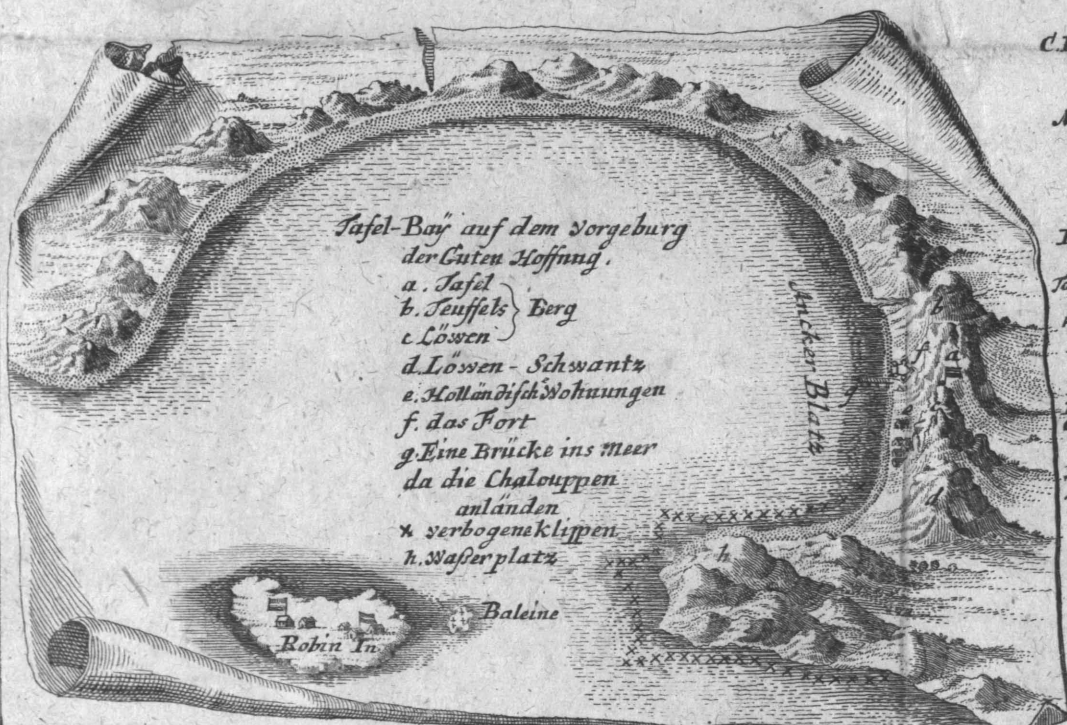 Tafel-Baÿ auf dem Vorgeburg
der Guten Hoffnug.
a. Tafel
b. Teuffels } Berg
c Löwen
d. Löwen - Schwantz
e. Holländisch Wohnungen
f. das Fort
g. Eine Brücke ins Meer
da die Chalouppen
anländen
x verbogene klippen
h. Waßerplatz
Ancker Blatz
b
a
f
g
d
h
Baleine
Robin In